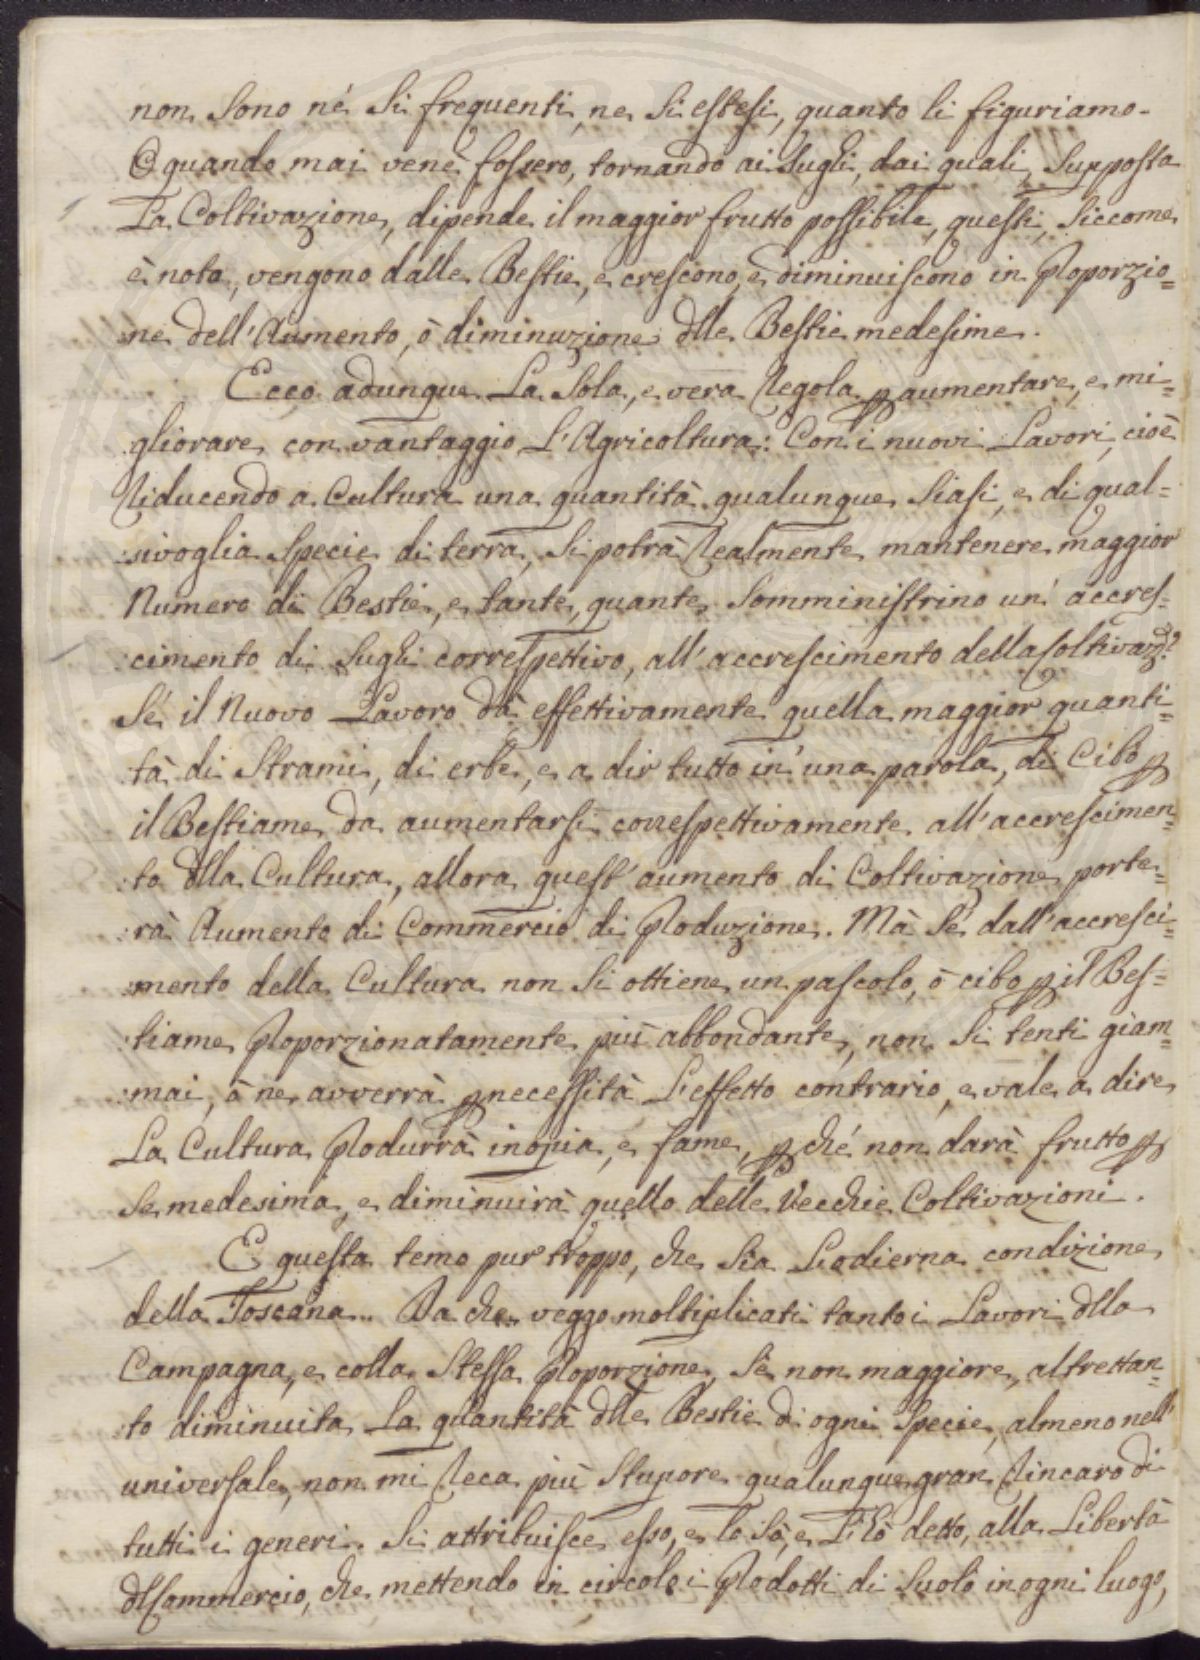 non sono nè si frequenti, ne si estesi, quanto li figuriamo.
O quando mai venè fossero, tornando ai sughi, dai quali, supposta
La Coltivazione, dipende il maggior frutto possibile, questi, siccome
è noto, vengono dalle Bestie, e crescono, e diminuiscono in Proporzio=
:ne dell'Aumento, ò diminuzione dlle Bestie medesime.
Ecco adunque La Sola, e vera Regola p aumentare, e mi=
:gliorare con vantaggio L'Agricoltura: Con i nuovi Lavori, cioè
Riducendo a Cultura una quantità qualunque siasi, e di qual=
:sivoglia specie di terra, si potrà Realmente mantenere maggior
Numero di Bestie, e tante, quante somministrino un' accres=
:cimento di sughi correspettivo, all'accrescimento della Coltivazne
Sè il Nuovo Lavoro dà effettivamente quella maggior quanti=
:tà di Strami, di erbe, e a dir tutto in una parola, di Cibo p
il Bestiame da aumentarsi correspettivamente all'accrescimen=
:to dlla Cultura, allora quest'aumento di Coltivazione porte=
:rà Aumento di Commercio di Produzione. Mà Sè dall'accresci=
:mento della Cultura non si ottiene un pascolo, ò cibo p il Bes=
:tiame Proporzionatamente più abbondante, non si tenti giam=
:mai, ò ne avverrà p necessità L'effetto contrario, e vale a dire
La Cultura Produrrà inopia, e fame, p chè non darà frutto p
se medesima, e diminuirà quello delle Vecchie Coltivazioni.
E questa temo pur troppo, che sia L'odierna condizione
della Toscana.. Da che veggo moltiplicati tanto i Lavori dlla
Campagna, e colla Stessa Proporzione, Sè non maggiore, altrettan=
:to diminuita La quantità dlle Bestie di ogni Specie, almeno nell'
universale, non mi Reca più Stupore qualunque gran Rincaro di
tutti i generi. Si attribuisce esso, e lo sò, e L'hò detto, alla Libertà
dl Commercio, che mettendo in circolo i Prodotti di Suolo in ogni luogo,